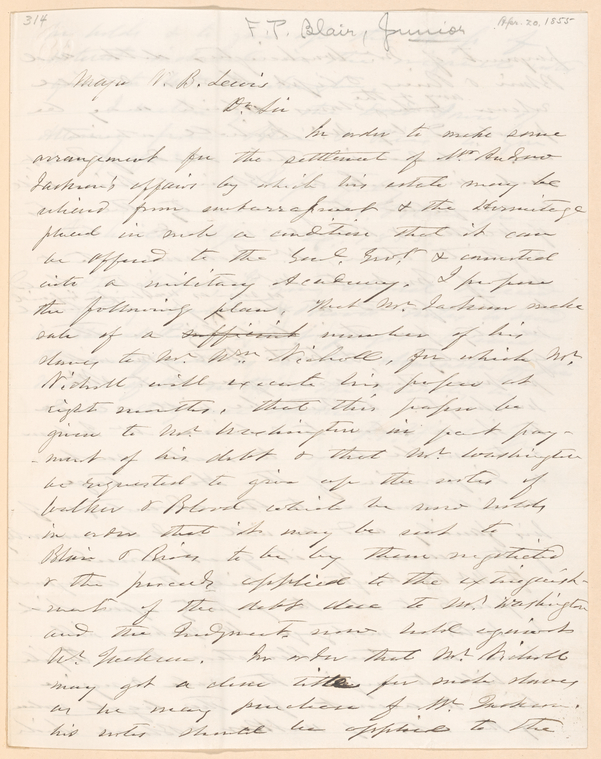 314
F. P. Blair, Junior
Apr. 20, 1855
Major W. B. Lewis
Dr Sir
In order to make some
arrangement for the settlement of Mr Andrew
Jackson's affairs by which his estate may be
relieved from embarrassment & the Hermitage
placed in such a condition that it can
be offered to the Genl. Govt. & converted
into a military Academy, I propose
the following plan, That Mr. Jackson make
sale of a sufficient number of his
slaves to Mr. Wm Nicholl, for which Mr.
Nicholl will execute his paper at
eight months, that this paper be
given to Mr. Washington in part pay-
-ment of his debt & that Mr. Washington
be requested to give up the notes of
Walker & Blood which he now holds
in order that it may be sent to
Blair & Rives to be by them negotiated
& the proceeds applied to the extinguish-
-ment of the debt due to Mr. Washington
and the Judgments now held against
Mr. Jackson. In order that Mr. Nicholl
may get a clear title for such slaves
as he may purchase of Mr. Jackson.
his notes should be applied to the